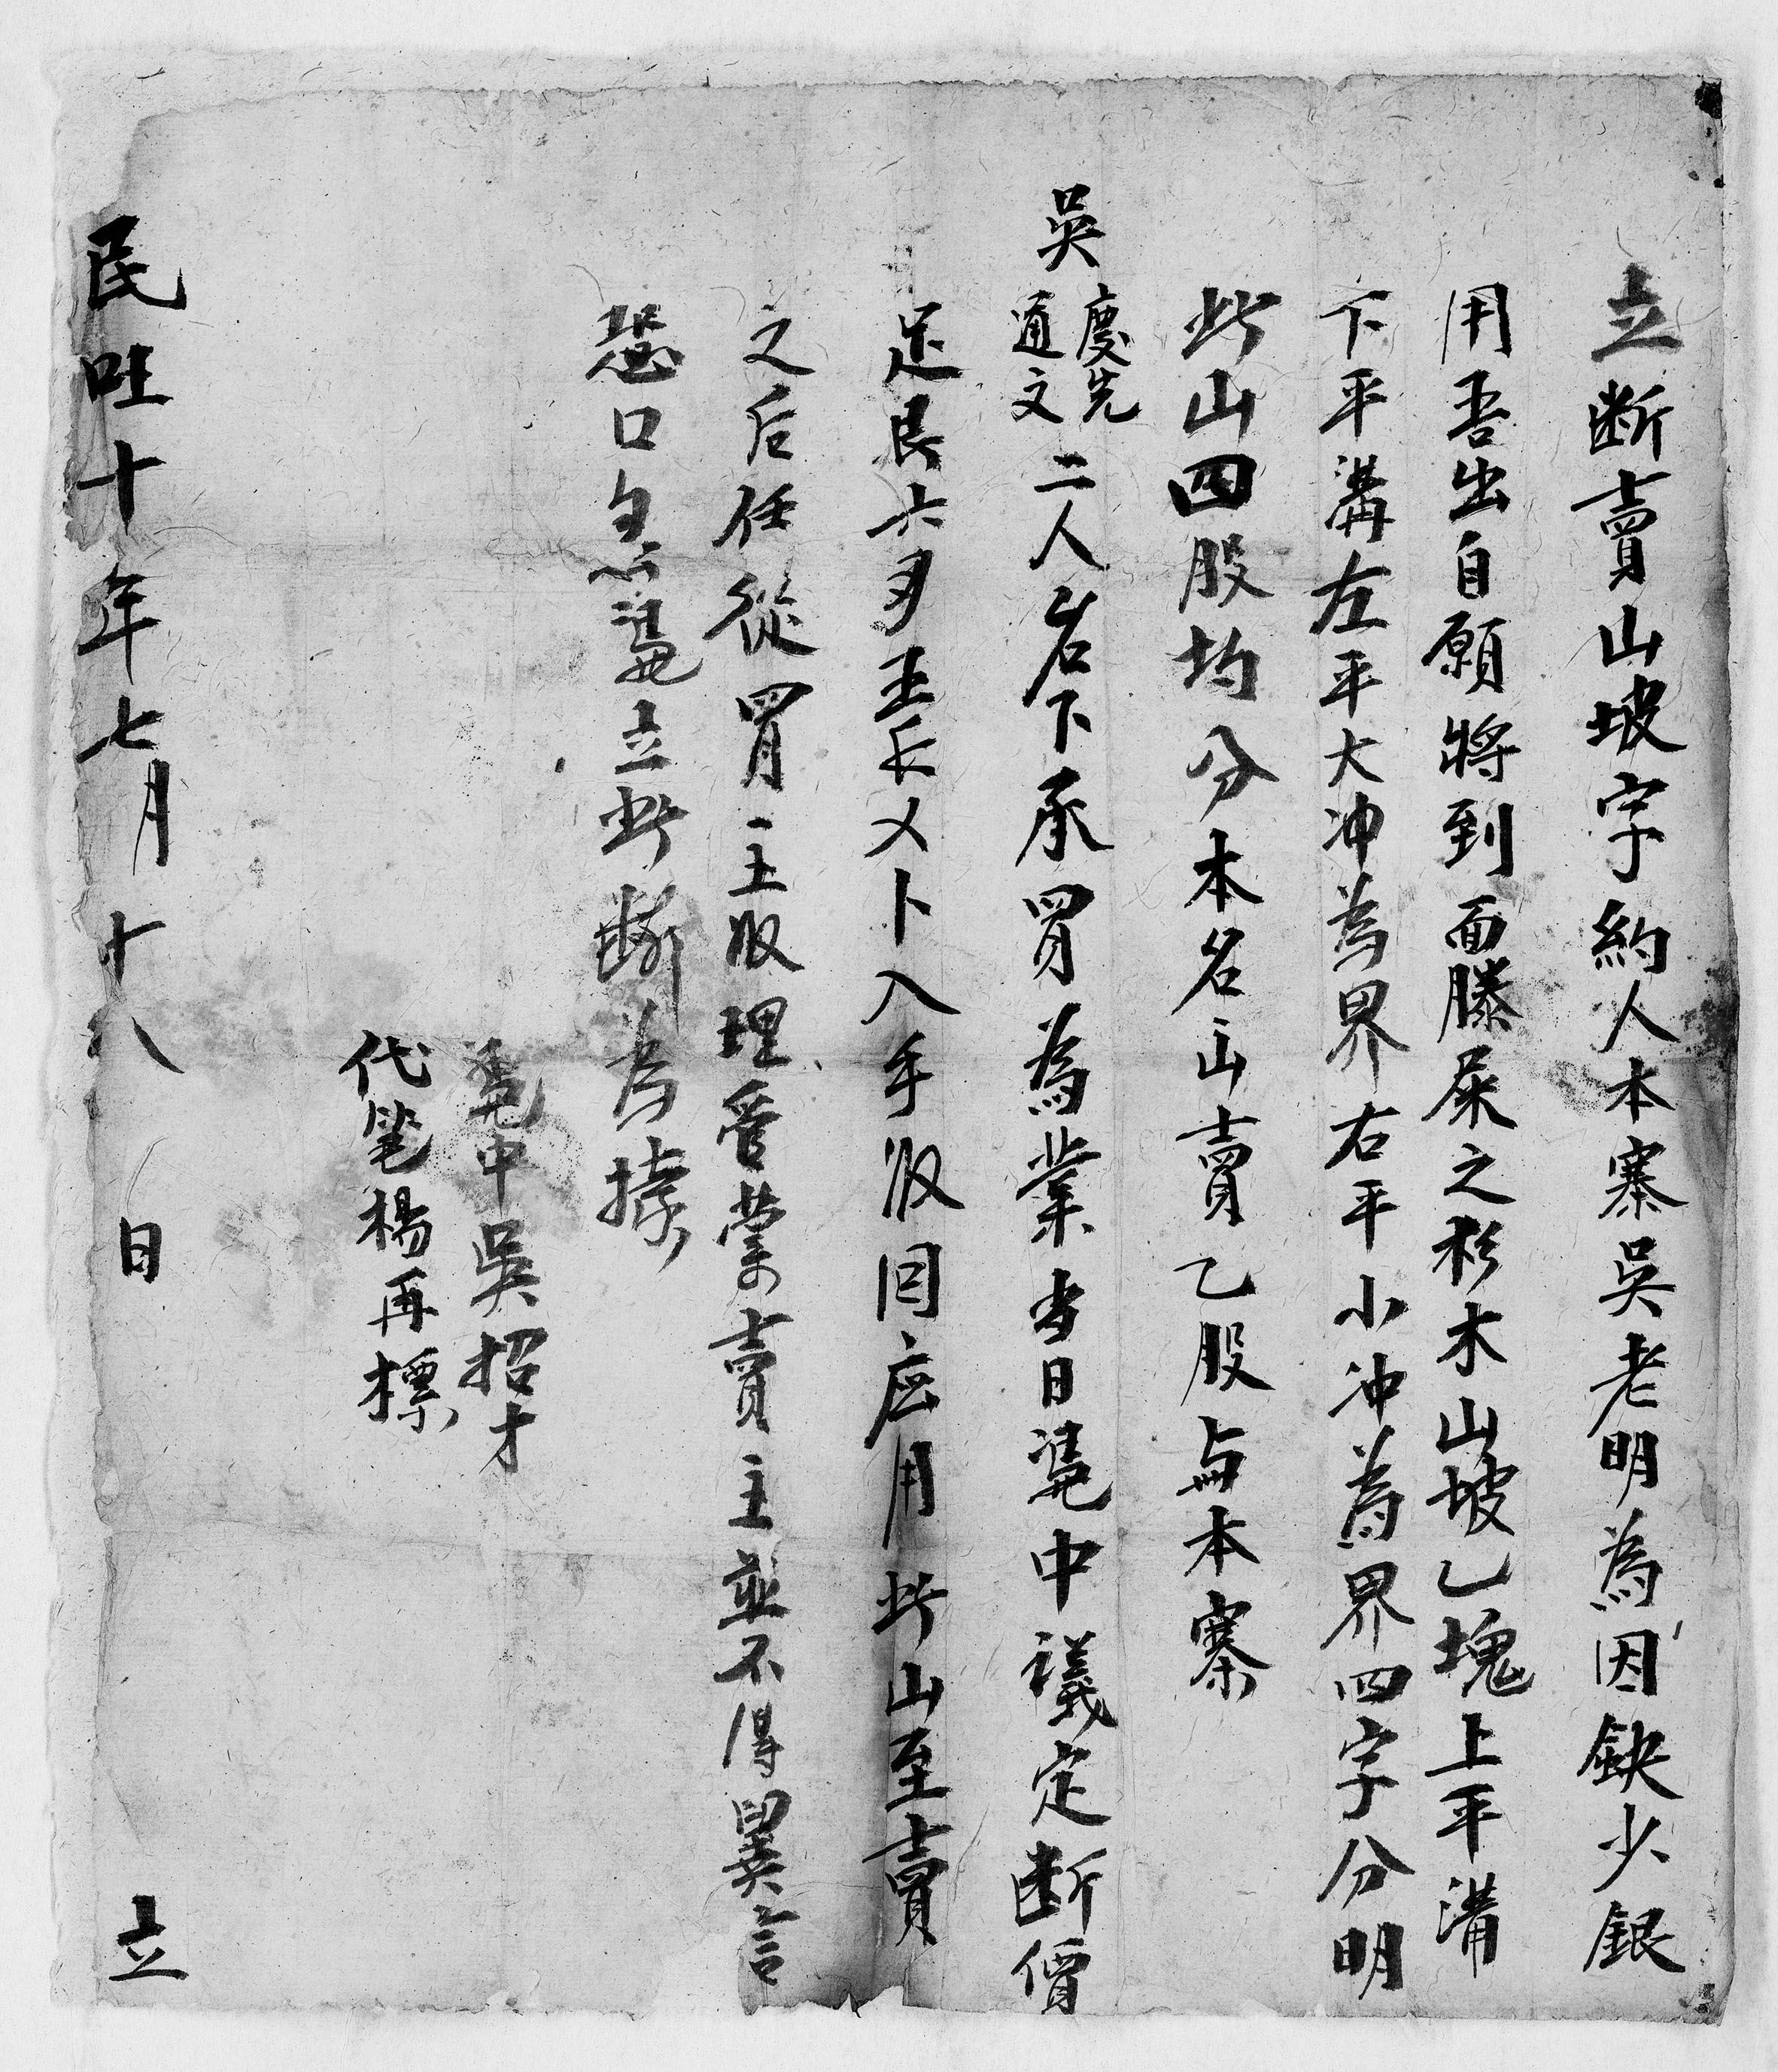 立断賣山坡字約人本寨吳老明為因缺少銀
用吾出自願將到面滕屎之杉木山坡乙塊上平溝
下平溝左平大冲為界右平小冲為界四字分明
此山四股均分本名山賣乙股与本寨
吳慶先通文二人岩下承買為業当日凴中議定断價
足艮六入手收囘应用此山至賣
之后任從買主收理管業賣主並不得異言
恐口凴立此断為據
凴中吳招才
代笔楊再標
民囯十年七月十八日立